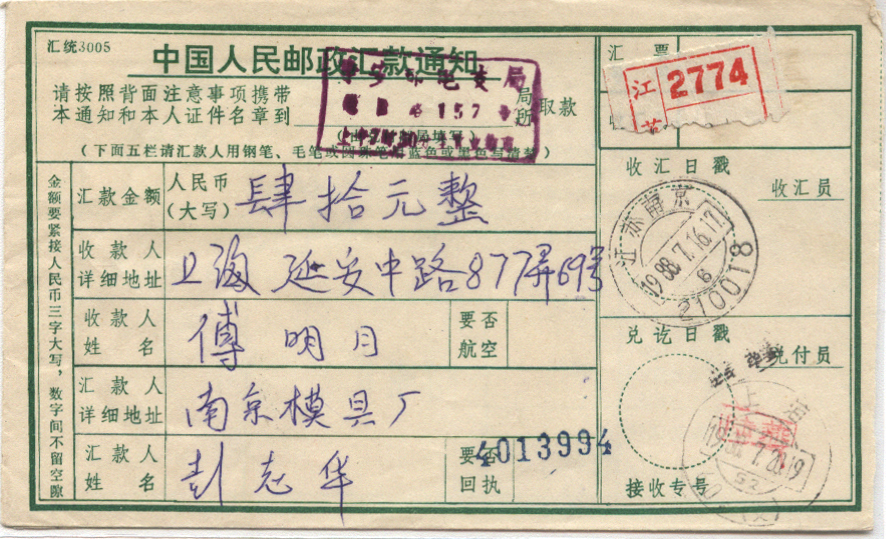 汇统3005
中国人民邮政汇款通知
请按照背面注意事项携带
本通知和本人证件名章到
局所
取款
(下面五栏请汇款人用钢笔、毛笔或圆珠笔用蓝色或黑色写清楚)
金额要紧接人民币三字大写,数字间不留空隙
汇款金额
人民币
(大写)
肆拾元整
收款人
详细地址
上海延安中路877弄69号
收款人
姓名
傅明月
要否
航空
汇款人
详细地址
南京模具厂
汇款人
姓名
彭志华
要否
回执
4013994
汇票
江苏
2774
收汇日戳
收汇员
江苏南京
1988.7.16.17
6
210018
兑讫日戳
兑付员
上海
52
接收专号